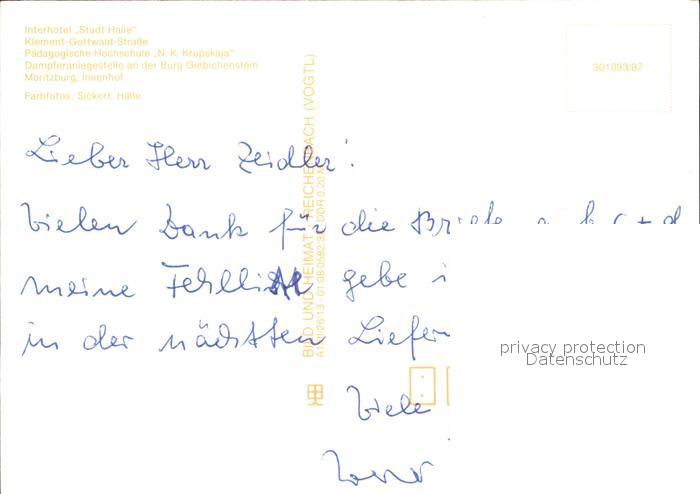 Interhotel „Stadt Halle"
Klement-Gottwald-Straße
Pädagogische Hochschule „N. K. Krupskaja"
Dampferanlegestelle an der Burg Giebichenstein
Moritzburg, Innenhof
Farbfotos: Sickert, Halle
301093/87
BILD UND HEIMAT REICHENBACH (VOGTL)
Lieber Herr Zeidler!
Vielen Dank für die
meine Fehlliste gebe
in der nächsten
Viele
privacy protection
Datenschutz